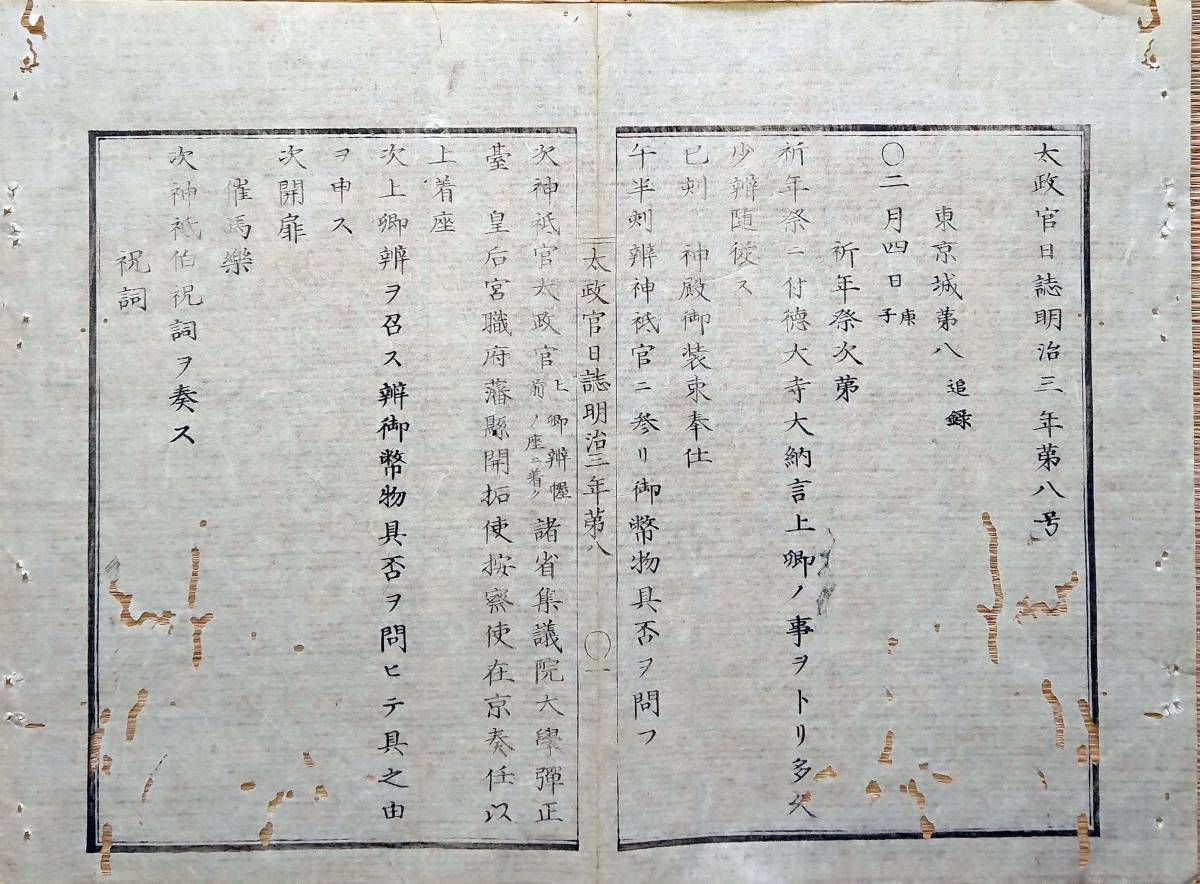 太政官日誌明治三年第八号
東京城第八 追録
〇二月四日 庚子
祈年祭次第
祈年祭ニ付徳大寺大納言上卿ノ事ヲトリ多久
少辨随從ス
巳刻 神殿御装束奉仕
午半刻辨神祗官ニ参リ御幣物具否ヲ問フ
太政官日誌明治三年第八 〇一
次神祗官太政官 上卿辨幄前ノ座ニ着ク 諸省集議院大學彈正
臺 皇后宮職府藩縣開拓使按察使在京奏任以
上着座
次上卿辨ヲ召ス辨御幣物具否ヲ問ヒテ具之由
ヲ申ス
次開扉
催馬樂
次神祗伯祝詞ヲ奏ス
祝詞